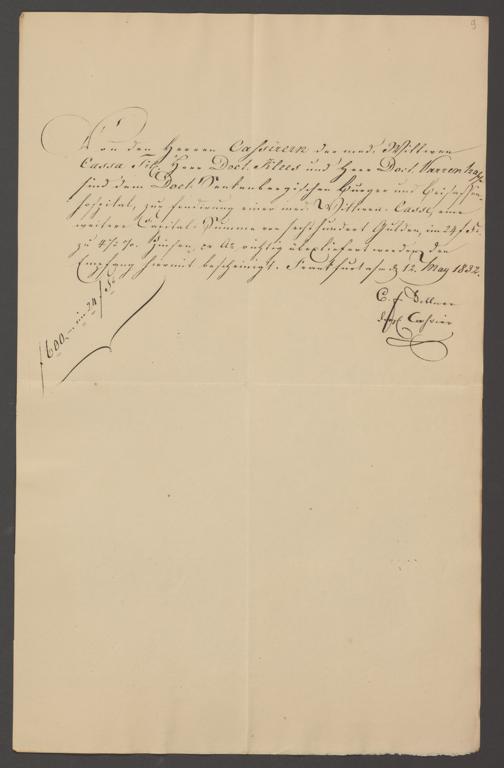 9
Von den Herren Cassirern der med. Wittwen
Cassa Tit. Herr Doct. Klees und Herr Doct. Varrentrapp
sind dem Doct. Senkenbergischen Burger und Beisassen
hospital, zur fundirung einer med. Wittwen-Casse, eine
weitere Capital-Summe von sechshundert Gulden, im 24 f. F.
zu % Zinsen, richtig überliefert worden, den
Empfang hiermit bescheinigt. Frankfurt a/m d. 12. May 1832.
C. F.
Cassier
f 600.— im 24 f. F.